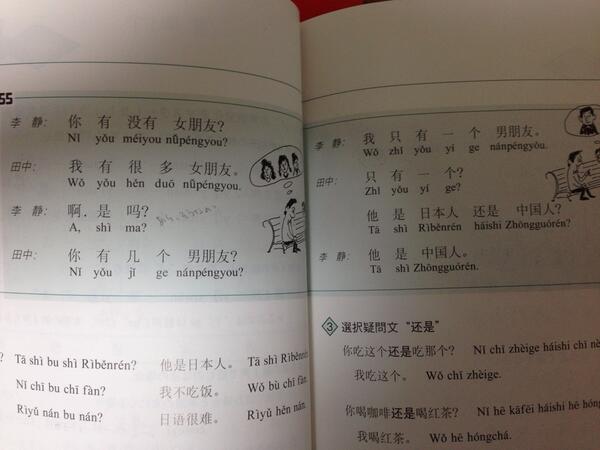 55
李 静： 你 有 没有 女朋友？
Nǐ yǒu méiyou nǚpéngyou?
田中： 我 有 很 多 女朋友。
Wǒ yǒu hěn duō nǚpéngyou.
李 静： 啊，是 吗？
A, shì ma?
田中： 你 有 几 个 男朋友？
Nǐ yǒu jǐ ge nánpéngyou?
? Tā shì bu shì Rìběnrén? 他是日本人。 Tā shì Rìběnrén
Nǐ chī bu chī fàn? 我不吃饭。 Wǒ bù chī fàn.
Rìyǔ nán bu nán? 日语很难。 Rìyǔ hěn nán.
李 静： 我 只 有 一 个 男朋友。
Wǒ zhǐ yǒu yí ge nánpéngyou.
田中： 只 有 一 个？
Zhǐ yǒu yí ge?
他 是 日本人 还是 中国人？
Tā shì Rìběnrén háishi Zhōngguórén?
李 静： 他 是 中国人。
Tā shì Zhōngguórén.
3 選択疑問文 “还是”
你吃这个还是吃那个？ Nǐ chī zhèige háishi chī nè
我吃这个。 Wǒ chī zhèige.
你喝咖啡还是喝红茶？ Nǐ hē kāfēi háishi hē hóng
我喝红茶。 Wǒ hē hóngchá.